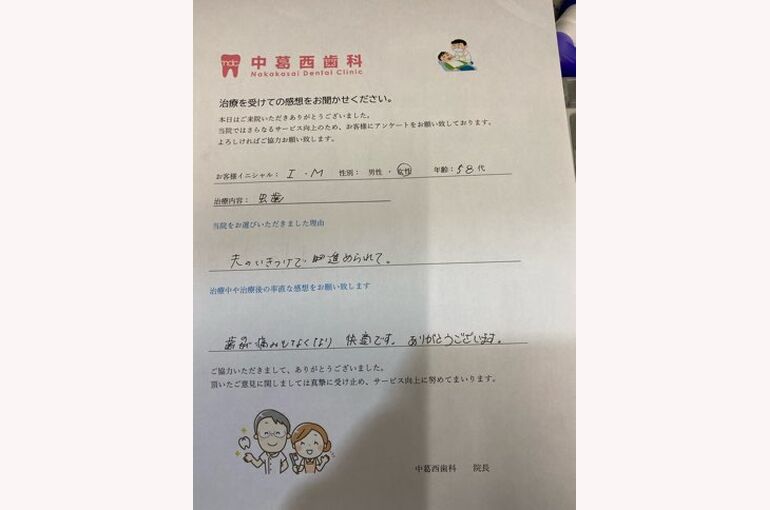 mdc
中葛西歯科
Nakakasai Dental Clinic
治療を受けての感想をお聞かせください。
本日はご来院いただきありがとうございました。
当院ではさらなるサービス向上のため、お客様にアンケートをお願い致しております。
よろしければご協力お願い致します。
お客様イニシャル： I・M 性別： 男性・女性 年齢：58代
治療内容： 虫歯
当院をお選びいただきました理由
夫のいきつけで 進められて。
治療中や治療後の率直な感想をお願い致します
痛みもなくなり 快適です。ありがとうございます。
ご協力いただきまして、ありがとうございました。
頂いたご意見に関しましては真摯に受け止め、サービス向上に努めてまいります。
中葛西歯科 院長